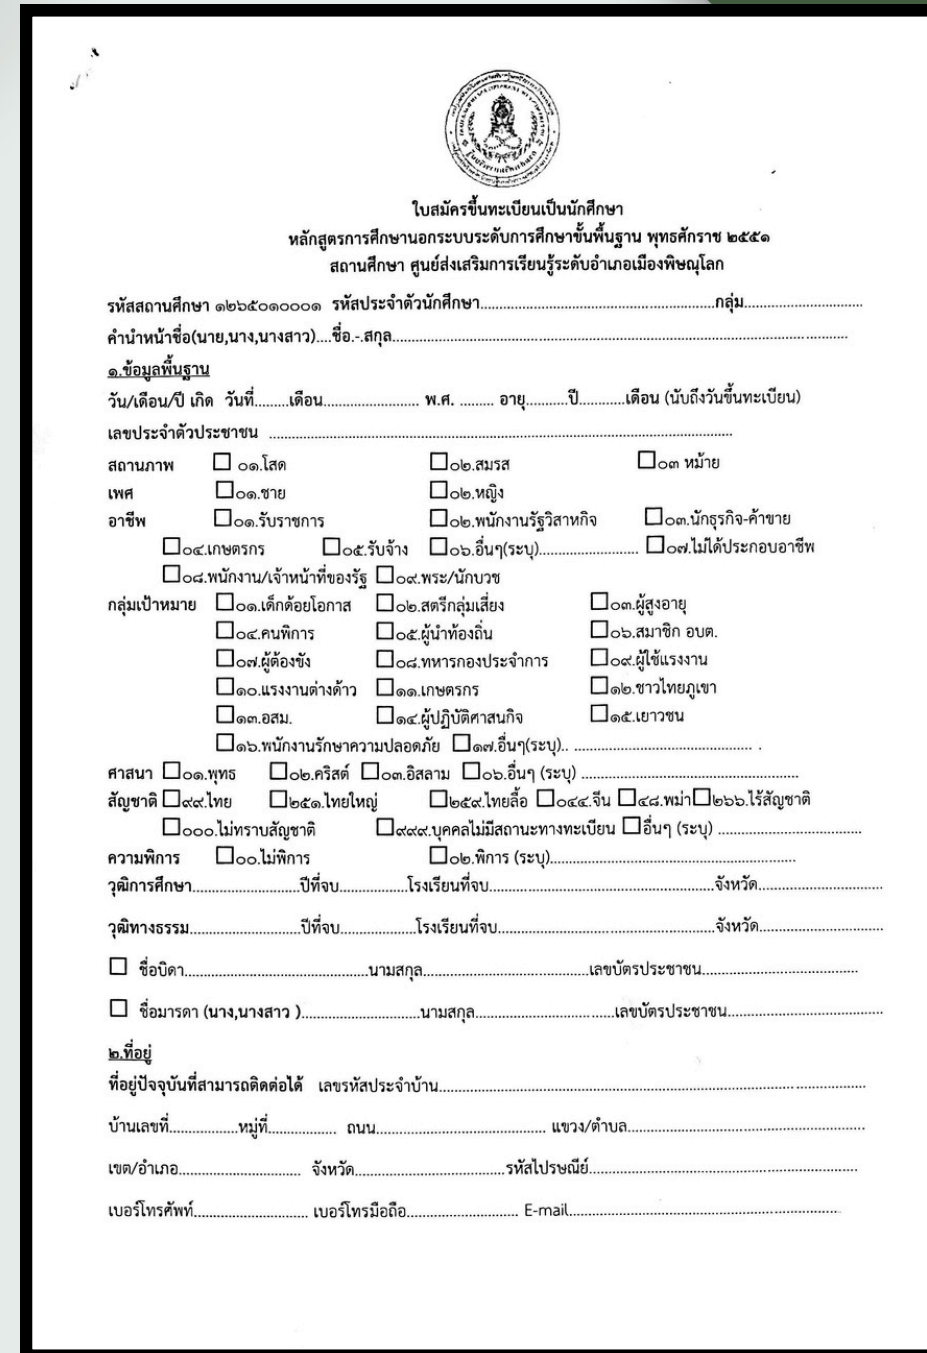 ใบสมัครขึ้นทะเบียนเป็นนักศึกษา
หลักสูตรการศึกษานอกระบบระดับการศึกษาขั้นพื้นฐาน พุทธศักราช ๒๕๕๑
สถานศึกษา ศูนย์ส่งเสริมการเรียนรู้ระดับอำเภอเมืองพิษณุโลก
รหัสสถานศึกษา ๑๒๖๕๐๑๐๐๐๑ รหัสประจำตัวนักศึกษา..........กลุ่ม..........
คำนำหน้าชื่อ(นาย,นาง,นางสาว)....ชื่อ.-.สกุล..........
๑.ข้อมูลพื้นฐาน
วัน/เดือน/ปี เกิด วันที่.........เดือน.......... พ.ศ. ......... อายุ..........ปี..........เดือน (นับถึงวันขึ้นทะเบียน)
เลขประจำตัวประชาชน ..........
สถานภาพ ☐ ๐๑.โสด ☐๐๒.สมรส ☐๐๓ หม้าย
เพศ ☐๐๑.ชาย ☐๐๒.หญิง
อาชีพ ☐๐๑.รับราชการ ☐๐๒.พนักงานรัฐวิสาหกิจ ☐๐๓.นักธุรกิจ-ค้าขาย
☐๐๔.เกษตรกร ☐๐๕.รับจ้าง ☐๐๖.อื่นๆ(ระบุ).......... ☐๐๗.ไม่ได้ประกอบอาชีพ
☐๐๘.พนักงาน/เจ้าหน้าที่ของรัฐ ☐๐๙.พระ/นักบวช
กลุ่มเป้าหมาย ☐๐๑.เด็กด้อยโอกาส ☐๐๒.สตรีกลุ่มเสี่ยง ☐๐๓.ผู้สูงอายุ
☐๐๔.คนพิการ ☐๐๕.ผู้นำท้องถิ่น ☐๐๖.สมาชิก อบต.
☐๐๗.ผู้ต้องขัง ☐๐๘.ทหารกองประจำการ ☐๐๙.ผู้ใช้แรงงาน
☐๑๐.แรงงานต่างด้าว ☐๑๑.เกษตรกร ☐๑๒.ชาวไทยภูเขา
☐๑๓.อสม. ☐๑๔.ผู้ปฏิบัติศาสนกิจ ☐๑๕.เยาวชน
☐๑๖.พนักงานรักษาความปลอดภัย ☐๑๗.อื่นๆ(ระบุ).. ..........
ศาสนา ☐๐๑.พุทธ ☐๐๒.คริสต์ ☐๐๓.อิสลาม ☐๐๖.อื่นๆ (ระบุ) ..........
สัญชาติ ☐๙๙.ไทย ☐๒๕๑.ไทยใหญ่ ☐๒๕๙.ไทยลื้อ ☐๐๔๔.จีน ☐๔๘.พม่า☐๒๖๖.ไร้สัญชาติ
☐๐๐๐.ไม่ทราบสัญชาติ ☐๙๙๙.บุคคลไม่มีสถานะทางทะเบียน ☐อื่นๆ (ระบุ) ..........
ความพิการ ☐๐๐.ไม่พิการ ☐๐๒.พิการ (ระบุ)..........
วุฒิการศึกษา..........ปีที่จบ..........โรงเรียนที่จบ..........จังหวัด..........
วุฒิทางธรรม..........ปีที่จบ..........โรงเรียนที่จบ..........จังหวัด..........
☐ ชื่อบิดา..........นามสกุล..........เลขบัตรประชาชน..........
☐ ชื่อมารดา (นาง,นางสาว )..........นามสกุล..........เลขบัตรประชาชน..........
๒.ที่อยู่
ที่อยู่ปัจจุบันที่สามารถติดต่อได้ เลขรหัสประจำบ้าน..........
บ้านเลขที่..........หมู่ที่.......... ถนน.......... แขวง/ตำบล..........
เขต/อำเภอ.......... จังหวัด..........รหัสไปรษณีย์..........
เบอร์โทรศัพท์.......... เบอร์โทรมือถือ.......... E-mail..........